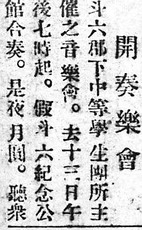 開奏樂會
斗六郡下中等學生團所主
催之音樂會。去十三日午
後七時起。假斗六紀念公
館合奏。是夜月圓。聽衆